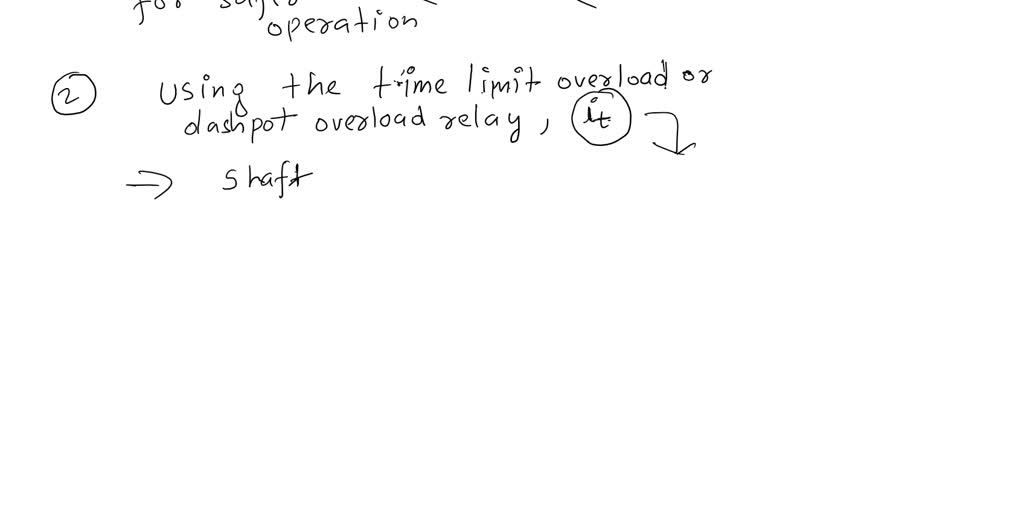 for
operation
② using the time limit overload or
dashpot overload relay, it
⇒ shaft